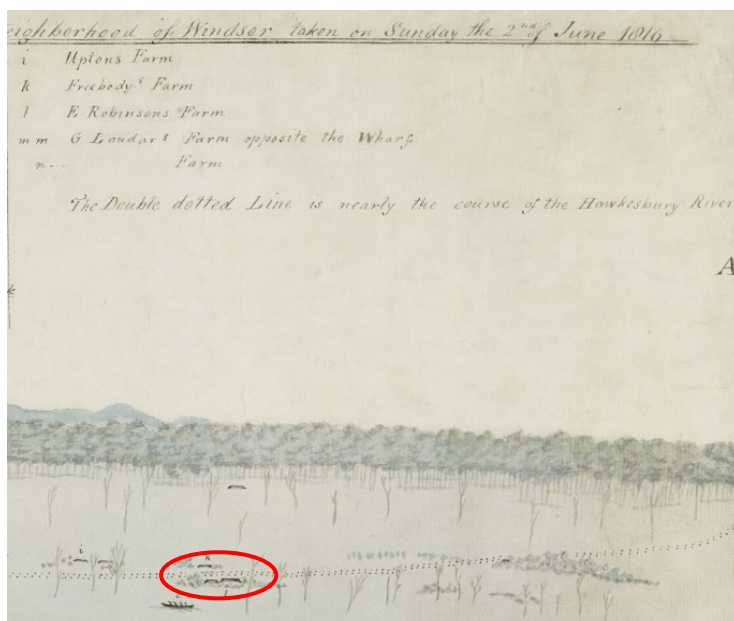 eighborhood of Windsor taken on Sunday the 2nd of June 1816
i Uptons Farm
k Freebodys Farm
l E Robinsons Farm
m m G Loudars Farm opposite the Wharf
n.. Farm
The Double dotted Line is nearly the course of the Hawkesbury River
A
k
i k
l